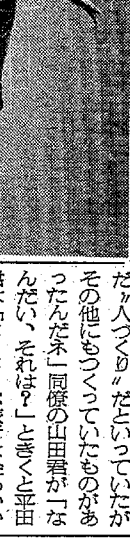 だ〃人づくり〃だといっていたが
その他にもつくっていたものがあ
ったんだネ」同僚の山田君が「な
んだい、それは？」ときくと平田